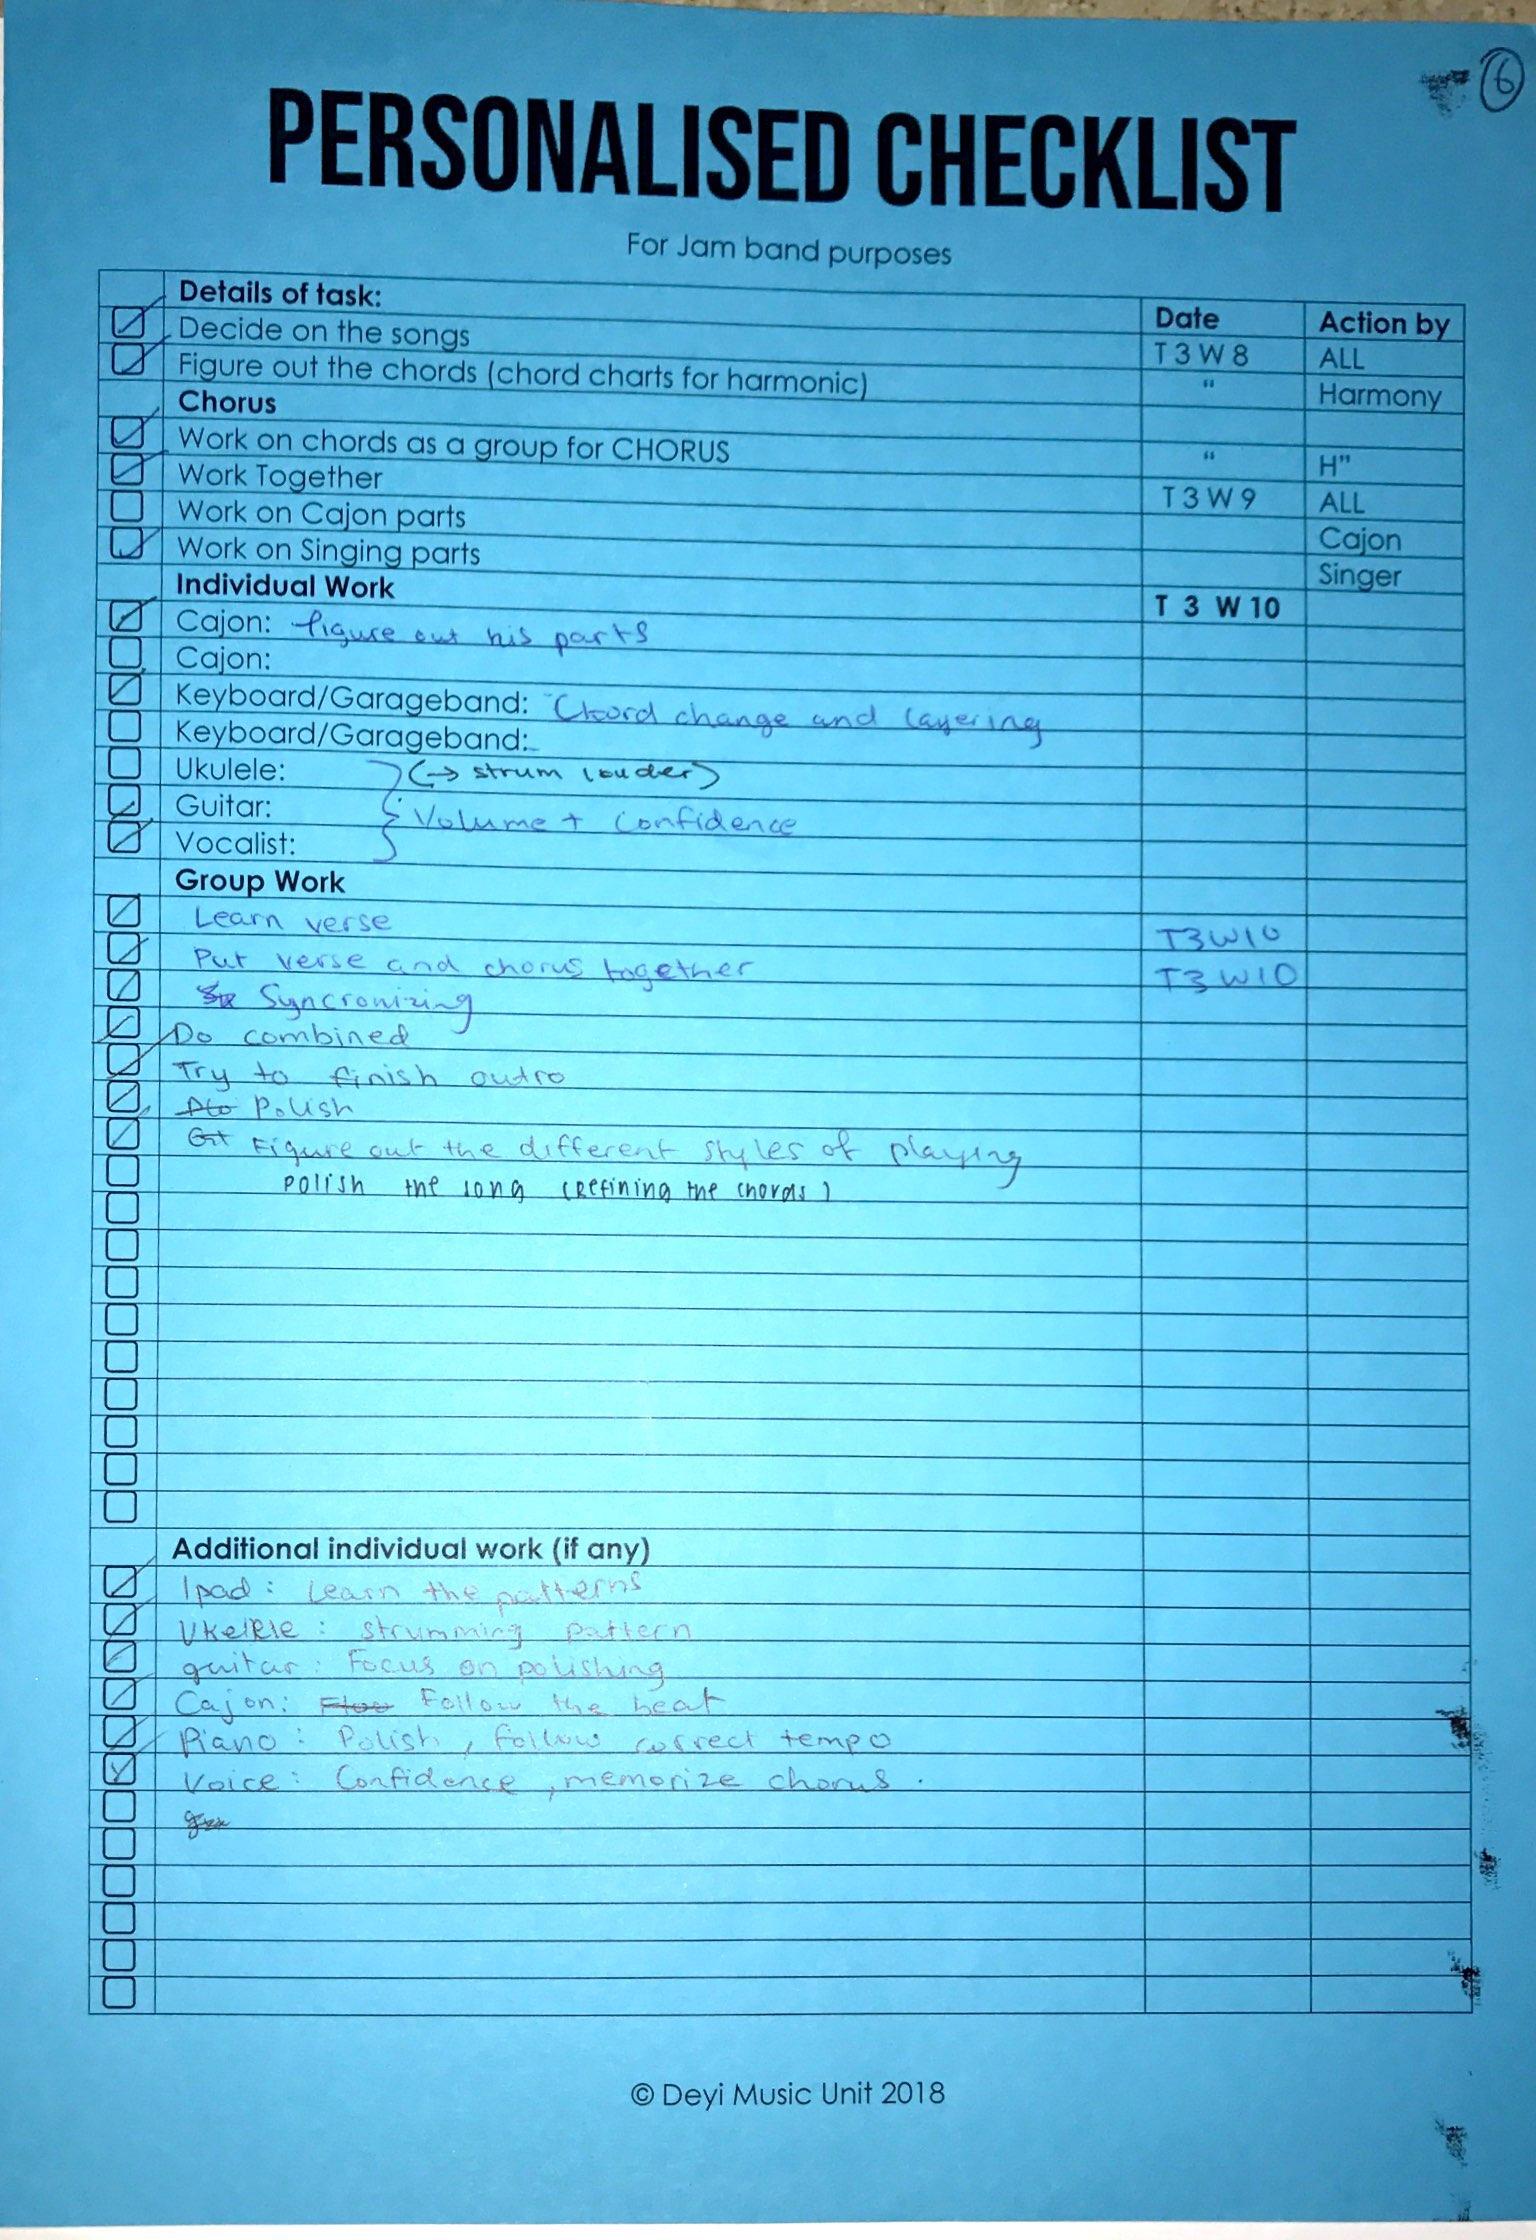 6
PERSONALISED CHECKLIST
For Jam band purposes
Details of task: Date Action by
Decide on the songs T 3 W 8 ALL
Figure out the chords (chord charts for harmonic) “ Harmony
Chorus
Work on chords as a group for CHORUS “ H”
Work Together T 3 W 9 ALL
Work on Cajon parts Cajon
Work on Singing parts Singer
Individual Work T 3 W 10
Cajon: figure out his parts
Cajon:
Keyboard/Garageband: Chord change and layering
Keyboard/Garageband:
Ukulele: (→ strum louder)
Guitar: Volume + Confidence
Vocalist:
Group Work
Learn verse T3W10
Put verse and chorus together T3W10
Syncronizing
Do combined
Try to finish outro
Polish
Figure out the different styles of playing
polish the song (Refining the chords)
Additional individual work (if any)
Ipad: Learn the patterns
Ukelele: strumming pattern
guitar: Focus on polishing
Cajon: Follow the beat
Piano: Polish, follow correct tempo
Voice: Confidence, memorize chorus.
© Deyi Music Unit 2018